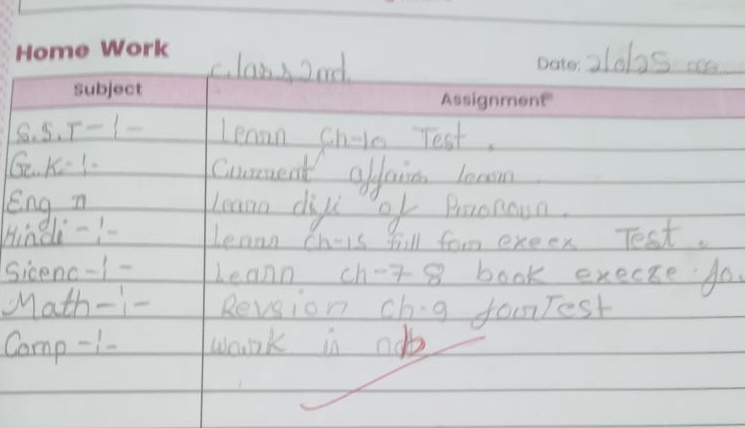 Home Work
class 2nd Date: 2/0/25
Subject Assignment
S.S.T-!- Learn Ch-10 Test.
G.K-!- Current affairs learn
Eng Learn difi of Pronoun.
Hindi-!- Learn Ch-15 fill fom exeex Test.
Sicenc-!- Learn ch-7 8 book execze fo
Math-!- Revsion ch-9 fourTest
Comp-!- Work in nb